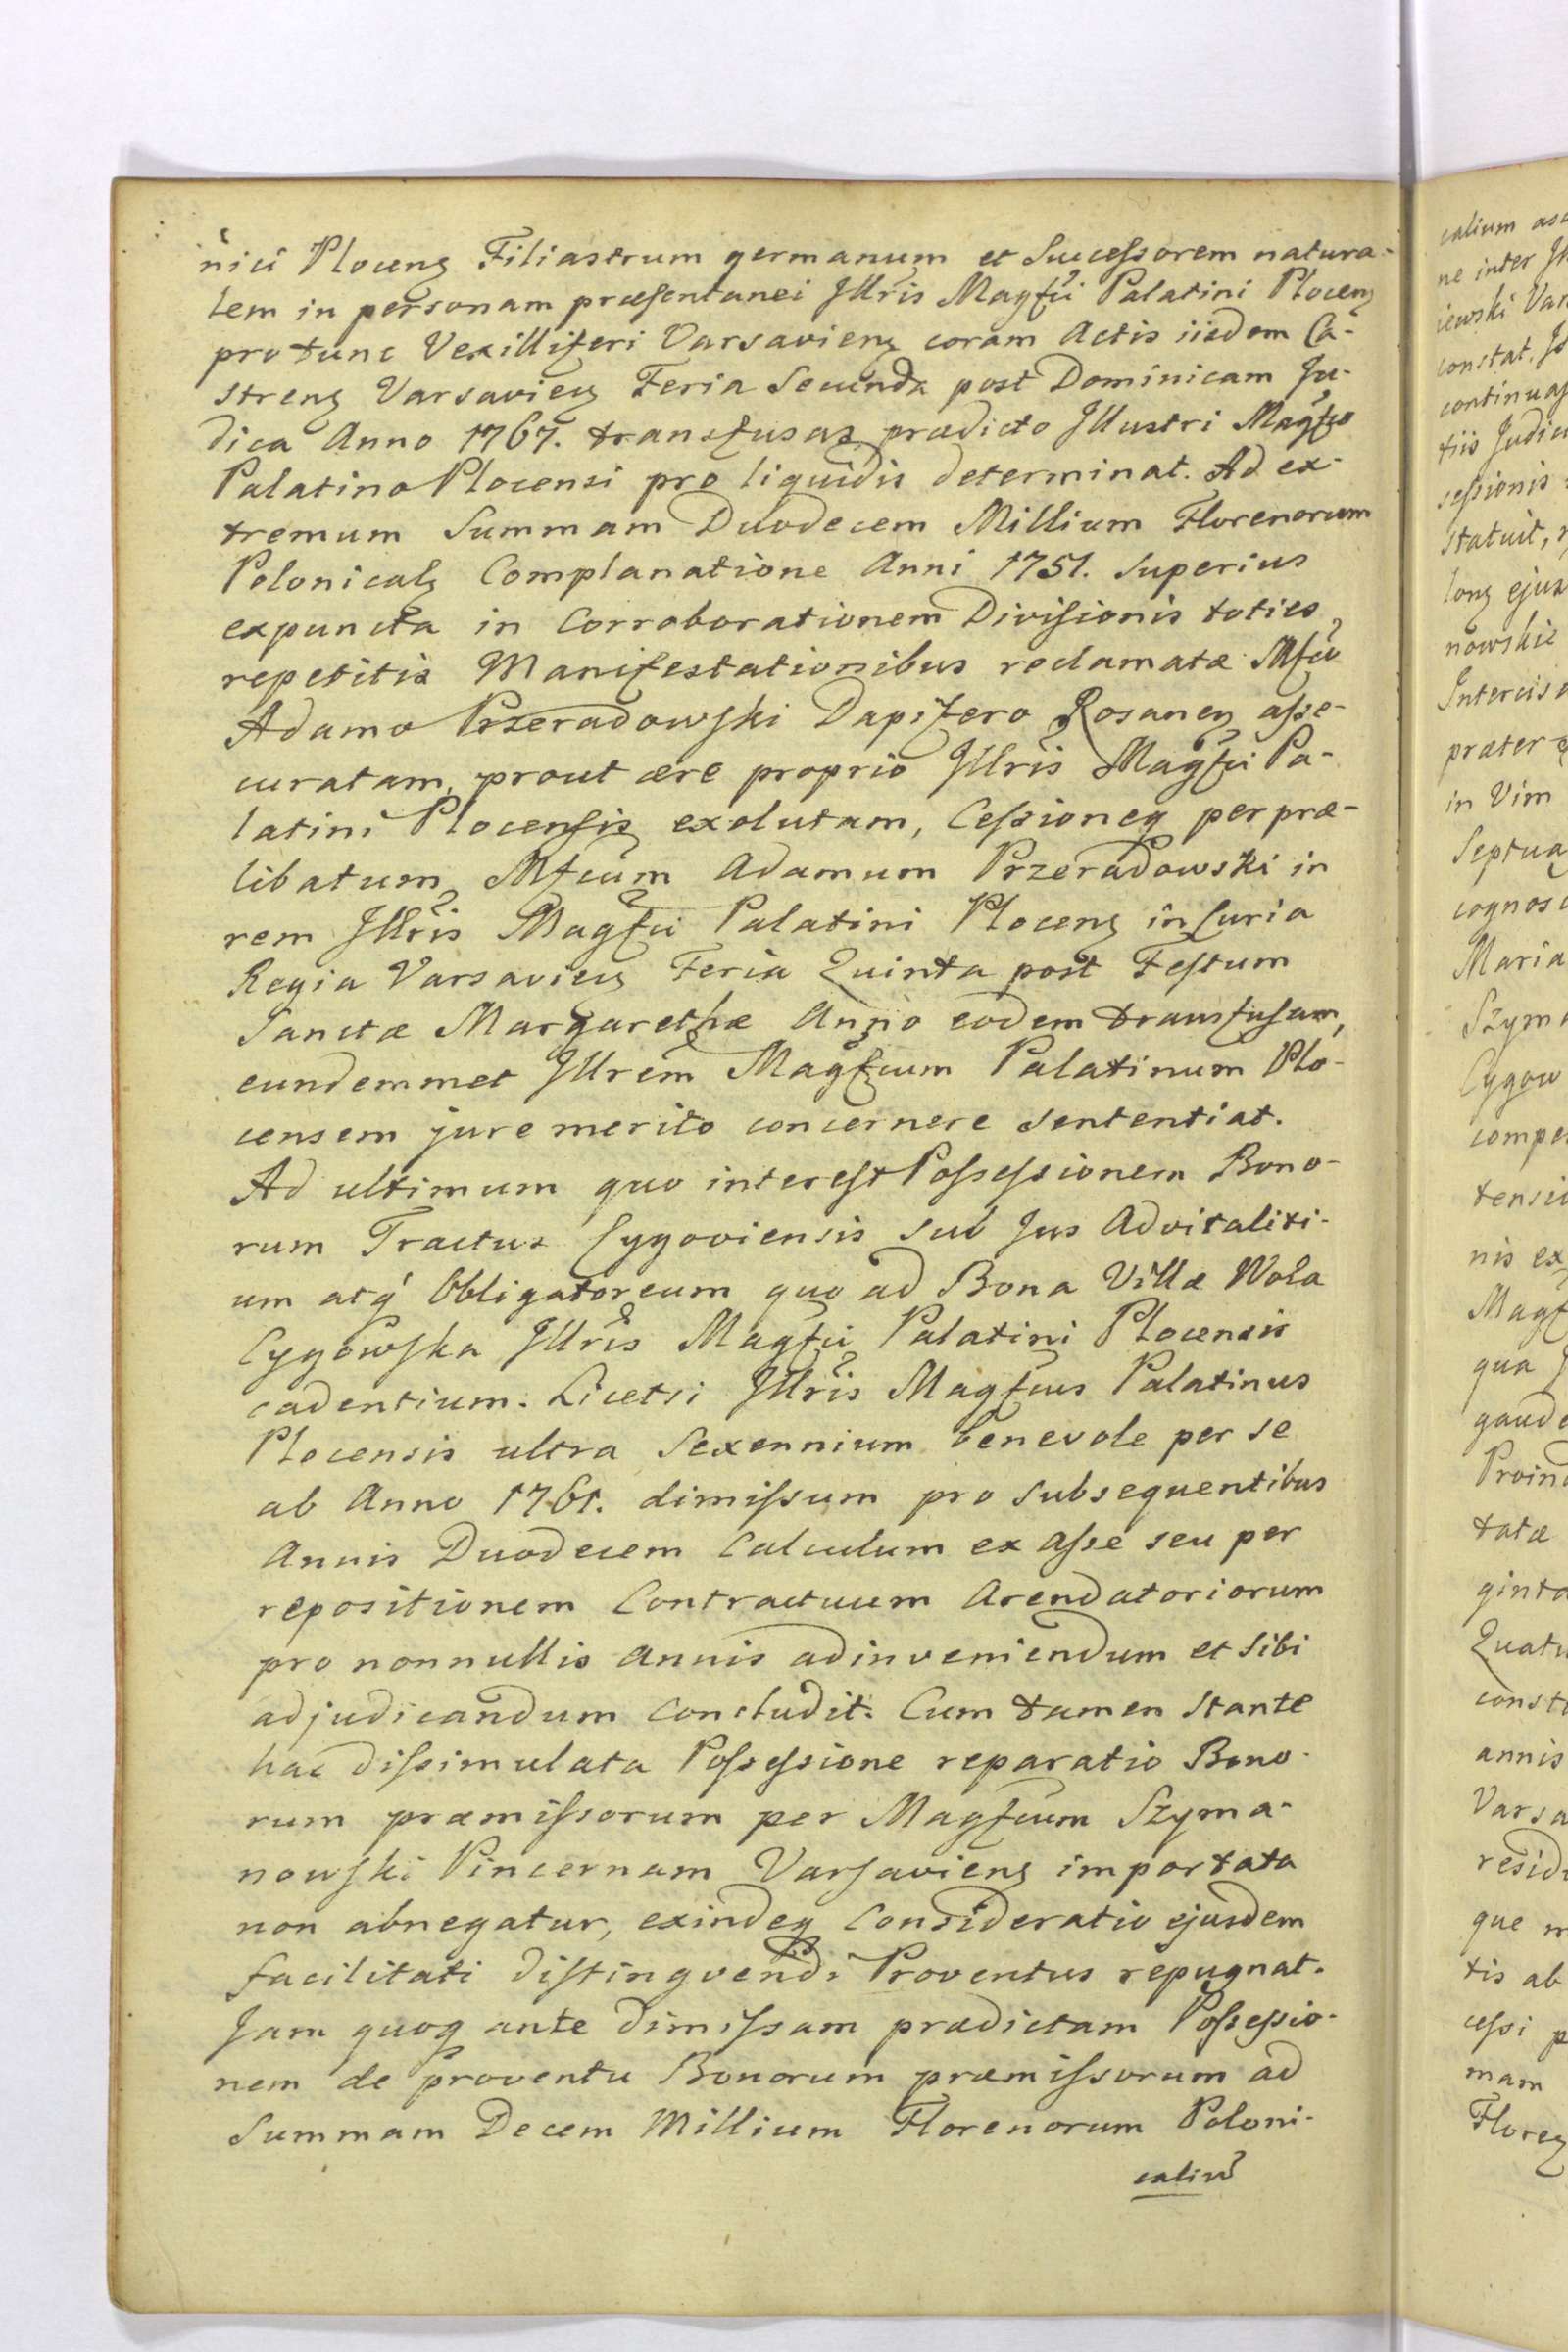 nici Plocenz Filiastrum germanum et Succeſsorem natura-
lem in personam præſentanei Jllris Magfci Palatini Plocenz
protunc Vexilliferi Varsavienz coram Actis iisdem Ca-
strenz Varsavienz Feria Secunda post Dominicam Ju-
dica Anno 1767. transfusas prædicto Jllustri Magfco
Palatino Plocensi pro liquidis determinat. Ad ex-
tremum Summam Duodecem Millium Florenorum
Polonicalz Complanatione Anni 1751. Superius
expuncta in Corroborationem Diviſionis toties
repetitis Manifestationibus reclamatæ Mfco
Adamo Przeradowſki Dapifero Rosanenz aſse-
curatam, prout ære proprio Jllris Magfci Pa-
latini Plocenſis exolutam, Ceſsioneq per præ-
libatum Mfcum Adamum Przeradowski in
rem Jllris Magfci Palatini Plocenz in Curia
Regia Varsavienz Feria Quinta post Feſtum
Sanctæ Margarethæ Anno eodem transfuſam,
eundemmet Jllrem Magfcum Palatinum Plo-
censem jure merito concernere Sententiat.
Ad ultimum quo intereſt Poſseſsionem Bono-
rum Tractus Cygoviensis sub Jus Advitaliti-
um atq Obligatoreum quo ad Bona Villæ Wola
Cygowſka Jllris Magfci Palatini Plocensis
cadentium. Licetsi Jllris Magfcus Palatinus
Plocensis ultra Sexennium benevole per se
ab Anno 1761. dimiſsum pro subsequentibus
Annis Duodecem Calculum ex aſse seu per
repositionem Contractuum Arendatoriorum
pro nonnullis Annis adinveniendum et Sibi
adjudicandum Concludit. Cum tamen Stante
hac diſsimulata Poſseſsione reparatio Bono-
rum præmiſsorum per Magfcum Szyma-
nowſki Pincernam Varſavienz importata
non abnegatur, exindeq Consideratio ejusdem
facilitati diſtingvendi Proventus repugnat.
Jam quoq ante dimiſsam prædictam Poſseſsio-
nem de proventu Bonorum præmiſsorum ad
Summam Decem Millium Florenorum Poloni-
caliū
calium
ne inter
iewski
constat.
continuaſ
tiis Judic
seſsionis
Statuit,
long ejus
nowskie
Intercis
præter
in Vim
Septua
cognos
Maria
Szyma
Cygow
compe
tensio
nis ex
Magf
qua
gaude
Proind
tatæ
ginta
Quatu
const
annis
Varsa
resid
que
tis ab
ceſsi
mam
Florez